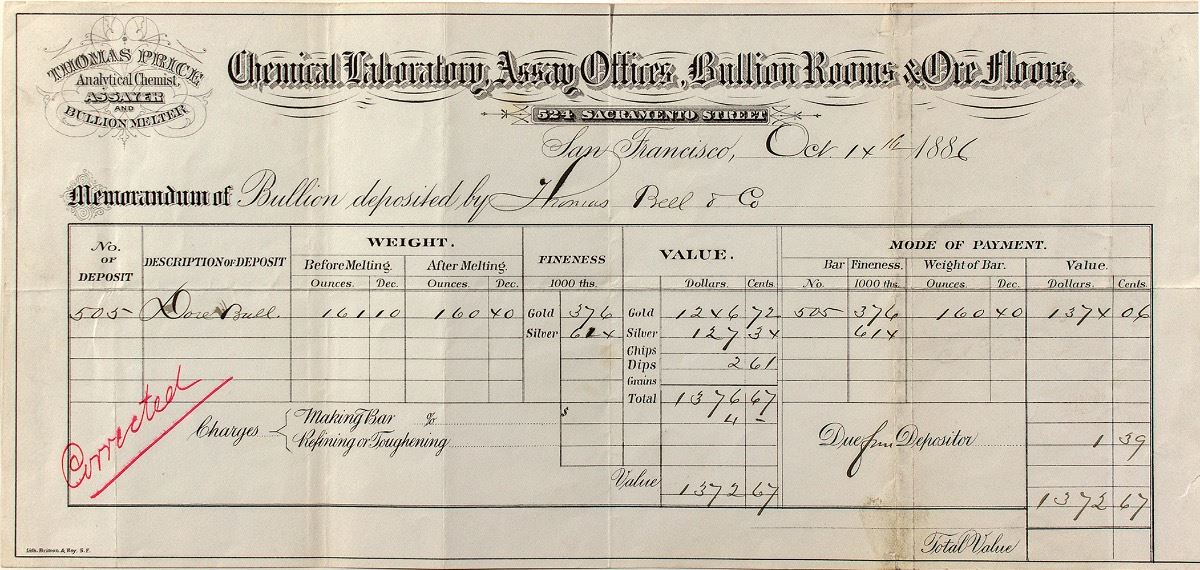 THOMAS PRICE
Analytical Chemist,
ASSAYER
AND
BULLION MELTER
Chemical Laboratory, Assay Offices, Bullion Rooms & Ore Floors.
524 SACRAMENTO STREET
San Francisco, Oct. 14th 1886
Memorandum of Bullion deposited by Thomas Bell & Co
No. OF DEPOSIT
DESCRIPTION OF DEPOSIT
WEIGHT.
FINENESS
VALUE.
MODE OF PAYMENT.
Before Melting. After Melting.
Bar Fineness. Weight of Bar. Value.
Ounces. Dec. Ounces. Dec. 1000 ths. Dollars. Cents No. 1000 ths. Ounces. Dec. Dollars. Cents.
505 Dore Bull. 161 10 160 40 Gold 376 Gold 1246 72 505 376 160 40 1374 06
Silver 614 Silver 127 34 614
Chips
Dips 2 61
Grains
Total 1376 67
Corrected
Charges Making Bar % $ 4 -
Refining or Toughening
Due from Depositor 1 39
Value 1372 67 1372 67
Total Value
Lith. Britton & Rey, S.F.